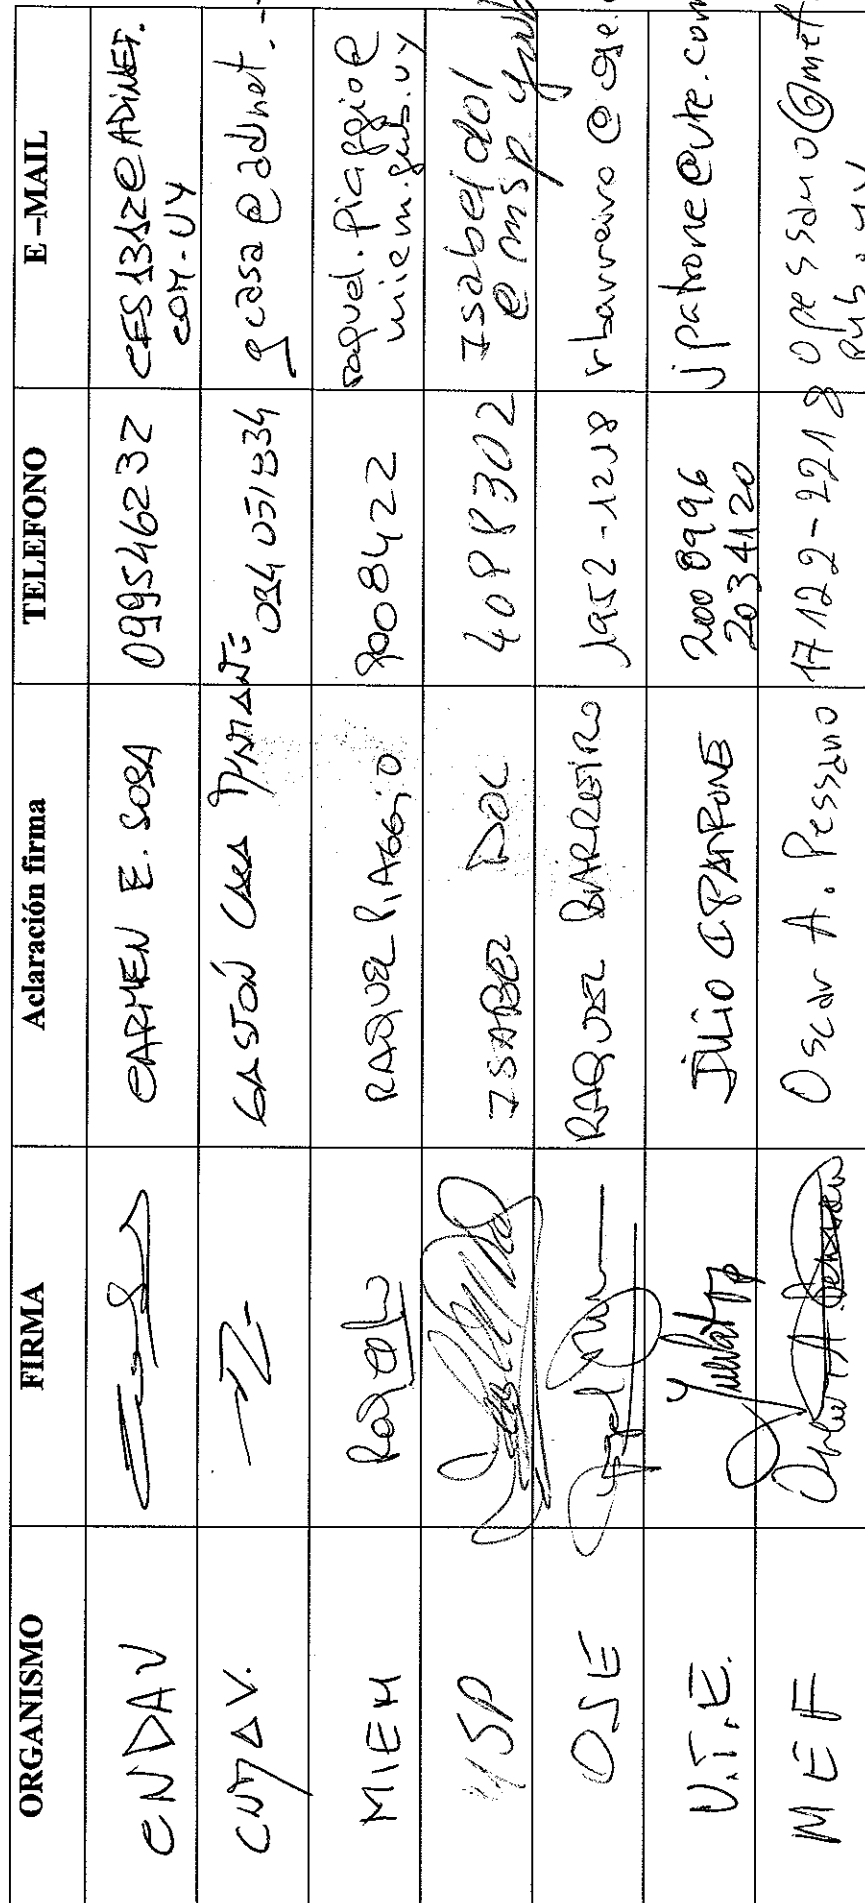 ORGANISMO FIRMA Aclaración firma TELEFONO E-MAIL
CNDAV CARMEN E. SOSA 099546232 CES1312@ADINET.
COM-UY
CNDAV. GASTÓN CASA 094 051834 gcasa@adinet.-
MIEM Raquel RAQUEL PIAGGIO 9008422 raquel.piaggio@
miem.gub.uy
MSP ISABEL DOL 4088302 Isabeldol
@msp.gub
OSE RAQUEL BARREIRO 1952-1218 rbarreiro@ose.
U.T.E. JULIO PATRONE 2008996 jpatrone@ute.com
2034120
MEF Oscar A. Pessano 17122-2218 opessano@mef.
gub.uy